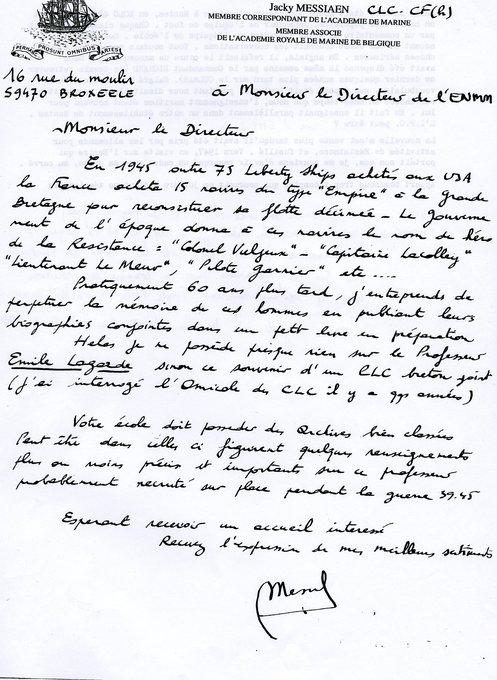 Jacky MESSIAEN CLC. CF(h)
MEMBRE CORRESPONDANT DE L'ACADEMIE DE MARINE
MEMBRE ASSOCIE
DE L'ACADEMIE ROYALE DE MARINE DE BELGIQUE
PROSUNT OMNIBUS ARTES
16 rue du moulin
59470 BROXEELE
à Monsieur le Directeur de l'ENMM
Monsieur le Directeur
En 1945 outre 75 Liberty Ships achetés aux USA
la France acheta 15 navires du type "Empire" à la Grande
Bretagne pour reconstituer sa flotte décimée - Le Gouverne
ment de l'époque donna à ces navires le nom de héros
de la Resistance = "Colonel Vieljeux" - "Capitaine Lacolley"
"Lieutenant Le Meur", "Pilote Garnier" etc ....
Pratiquement 60 ans plus tard, j'entreprends de
perpétuer la mémoire de ces hommes en publiant leurs
biographies conjointes dans un petit livre en préparation
Helas je ne possède presque rien sur le Professeur
Emile Lagarde sinon ce souvenir d'un CLC breton joint
(j'ai interrogé l'Amicale des CLC il y a qqs années)
Votre école doit posseder des Archives bien classées
Peut être dans celles ci figurent quelques renseignements
plus ou moins précis et importants sur ce professeur
probablement recruté sur place pendant la guerre 39.45
Esperant recevoir un accueil interessé
Recevez l'expression de mes meilleurs sentiments